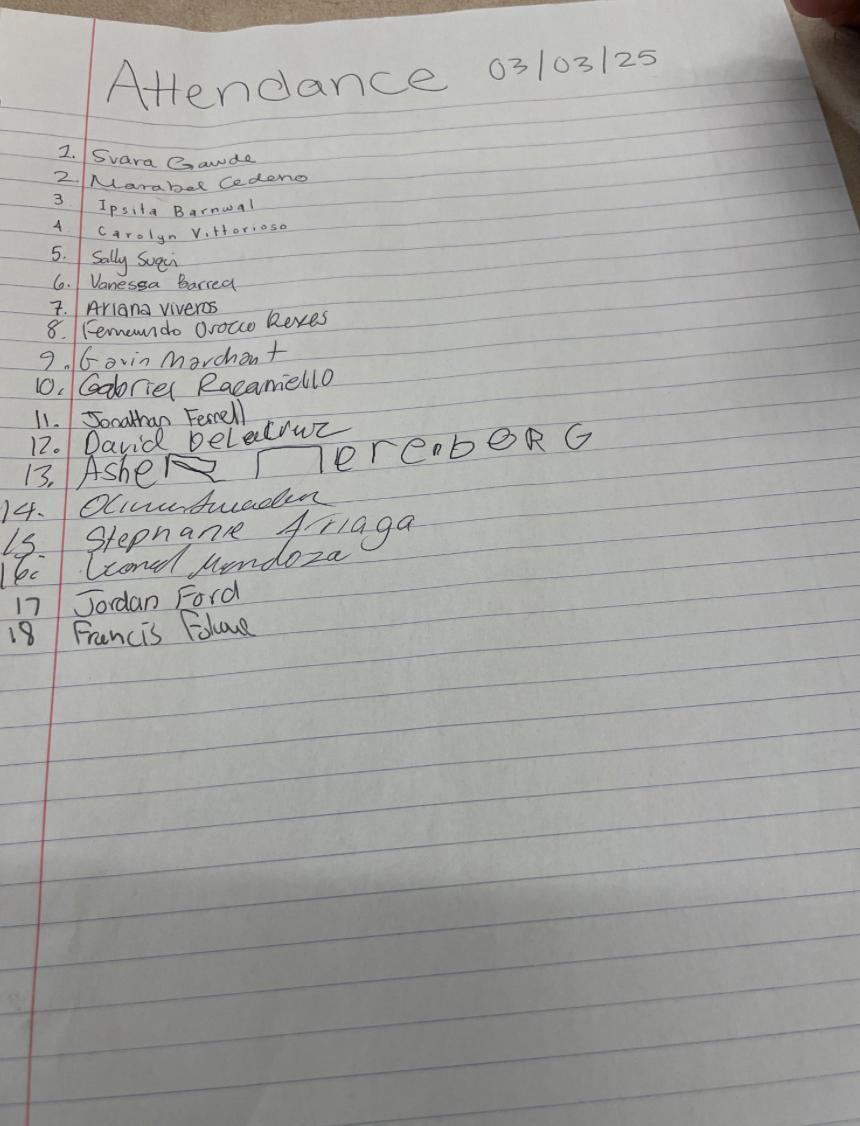 Attendance 03/03/25
1. Svara Gawde
2. Marabel Cedeno
3 Ipsita Barnwal
4 Carolyn Vittorioso
5. Sally Suqi
6. Vanessa Barrea
7. Ariana viveros
8. Fernando Orocio Reyes
9. Gavin Marchant
10. Gabriel Racaniello
11. Jonathan Ferrell
12. David Delacruz
13. Asher MerenbeRG
14.
15. Stephanie Arriaga
16. Leonel Mendoza
17 Jordan Ford
18 Francis